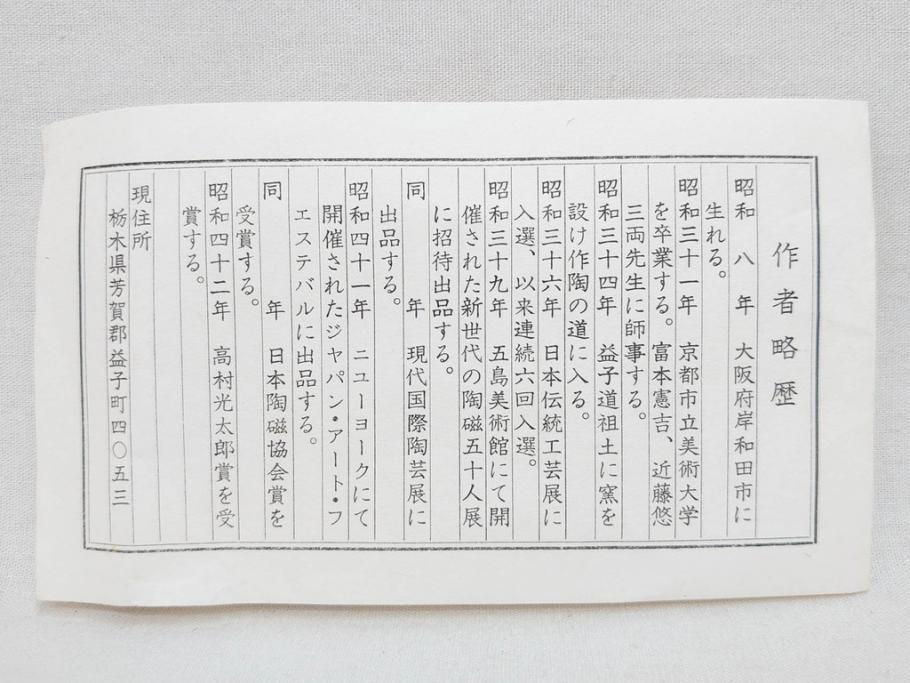 作者略歴
昭和　八　年　大阪府岸和田市に
生れる。
昭和三十一年　京都市立美術大学
を卒業する。富本憲吉、近藤悠
三両先生に師事する。
昭和三十四年　益子道祖土に窯を
設け作陶の道に入る。
昭和三十六年　日本伝統工芸展に
入選、以来連続六回入選。
昭和三十九年　五島美術館にて開
催された新世代の陶磁五十人展
に招待出品する。
同　　　　年　現代国際陶芸展に
出品する。
昭和四十一年　ニユーヨークにて
開催されたジャパン・アート・フ
エステバルに出品する。
同　　　　年　日本陶磁協会賞を
受賞する。
昭和四十二年　高村光太郎賞を受
賞する。
現住所
栃木県芳賀郡益子町四〇五三